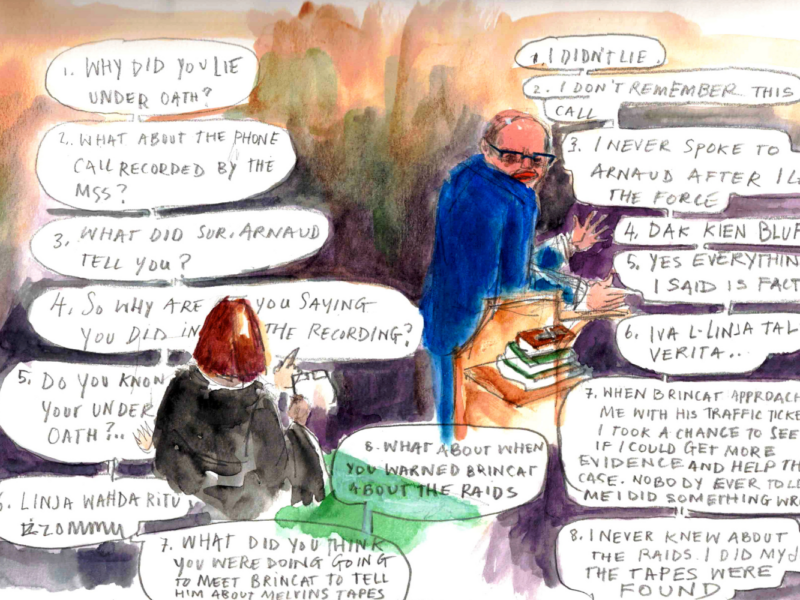 1. WHY DID YOU LIE
UNDER OATH?
2. WHAT ABOUT THE PHONE
CALL RECORDED BY THE
MSS?
3. WHAT DID SUR. ARNAUD
TELL YOU?
4. SO WHY ARE YOU SAYING
YOU DID IN THE RECORDING?
5. DO YOU KNOW
YOUR UNDER
OATH?..
6. LINJA WAHDA RITU
IŻŻOMMU
7. WHAT DID YOU THINK
YOU WERE DOING GOING
TO MEET BRINCAT TO TELL
HIM ABOUT MELVINS TAPES
8. WHAT ABOUT WHEN
YOU WARNED BRINCAT
ABOUT THE RAIDS
1. I DIDN'T LIE.
2. I DON'T REMEMBER THIS
CALL
3. I NEVER SPOKE TO
ARNAUD AFTER I
THE FORCE
4. DAK KIEN BLUF
5. YES EVERYTHIN
I SAID IS FACT
6. IVA L-LINJA TAL
VERITA...
7. WHEN BRINCAT APPROACH
ME WITH HIS TRAFFIC TICKE
I TOOK A CHANCE TO SEE
IF I COULD GET MORE
EVIDENCE AND HELP TH
CASE. NOBODY EVER TOL
ME I DID SOMETHING WR
8. I NEVER KNEW ABOUT
THE RAIDS. I DID MY
THE TAPES WERE
FOUND